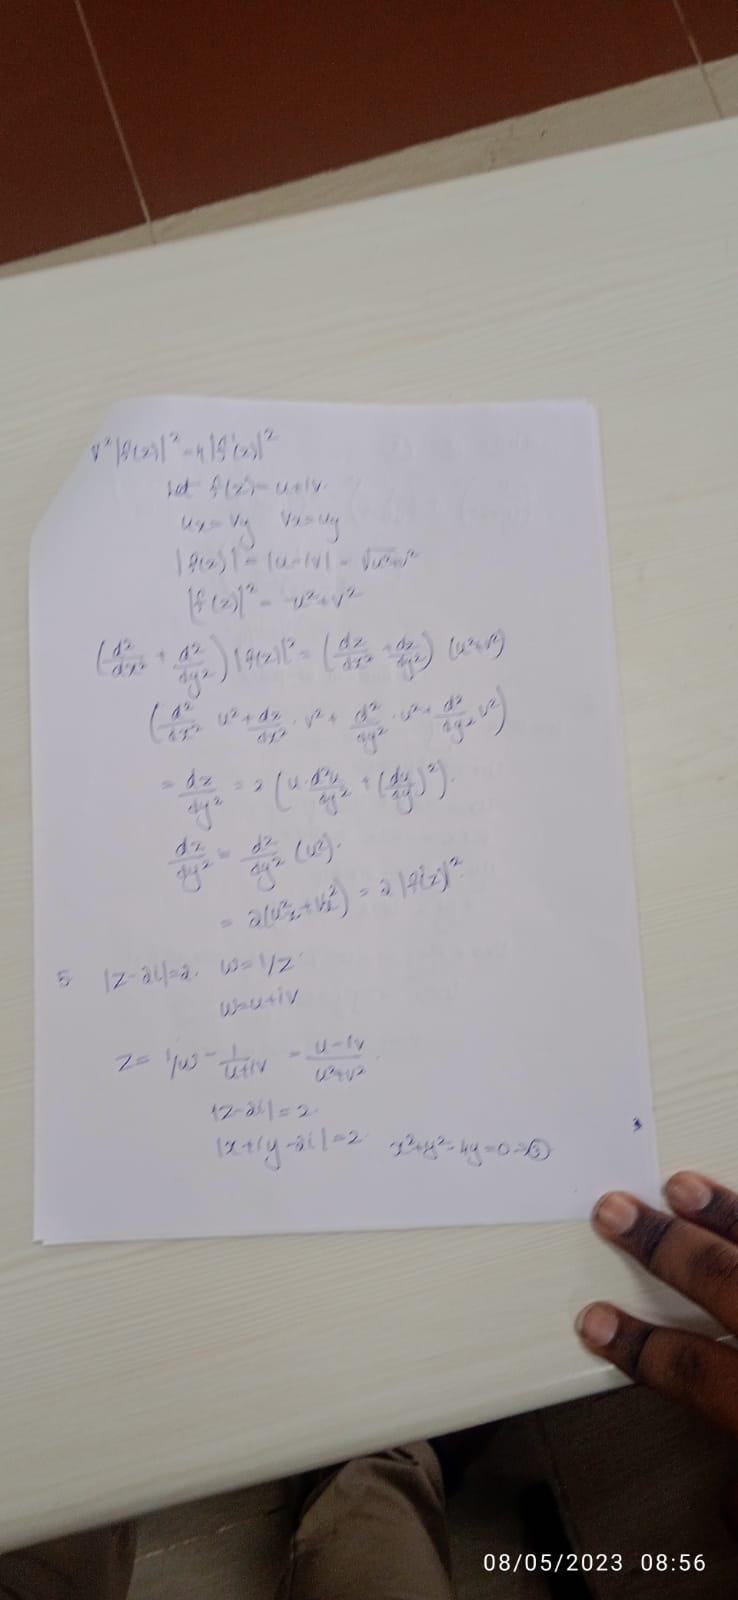 ∇²|f(z)|² = 4|f'(z)|²
let f(z) = u+iv
ux = vy vx = uy
|f(z)| = |u-iv| = √u²+v²
|f(z)|² = u²+v²
(d²/dx² + d²/dy²) |f(z)|² = (dz/dx² + dz/dy²) (u²+v²)
(d²/dx² u² + dz/dx² . v² + d²/dy² . u² + d²/dy² v²)
= dz/dy² = 2 (u . d²u/dy² + (du/dy)²).
dz/dy² = d²/dy² (u²).
= 2(u²x + v²x) = 2|f'(z)|²
5 |z-2i|=2. w=1/z
w=u+iv
z = 1/w = 1/u+iv = u-iv/u²+v².
|z-2i| = 2
|x+iy-2i| = 2 x²+y²-4y=0 → ③
3
08/05/2023 08:56